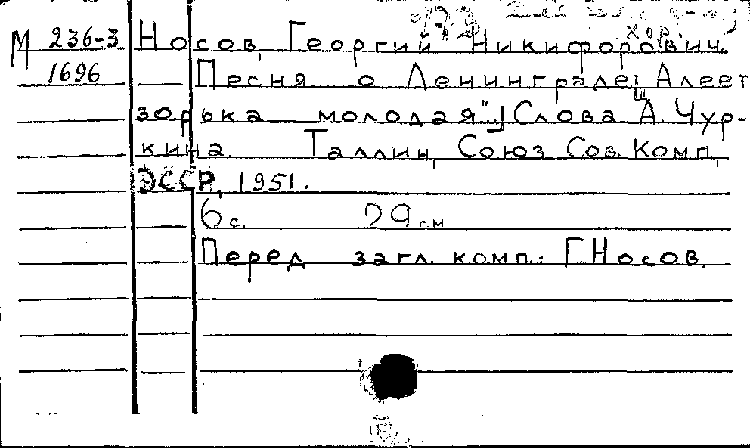 хор.
М 236-3 Носов, Георгий Никифорович.
1696 Песня о Ленинграде [„Алеет
зорька молодая"...] Слова А. Чур-
кина. Таллин, Союз Сов. Комп.
ЭССР, 1951.
6 с. 29 см
Перед загл. комп.: Г. Носов.